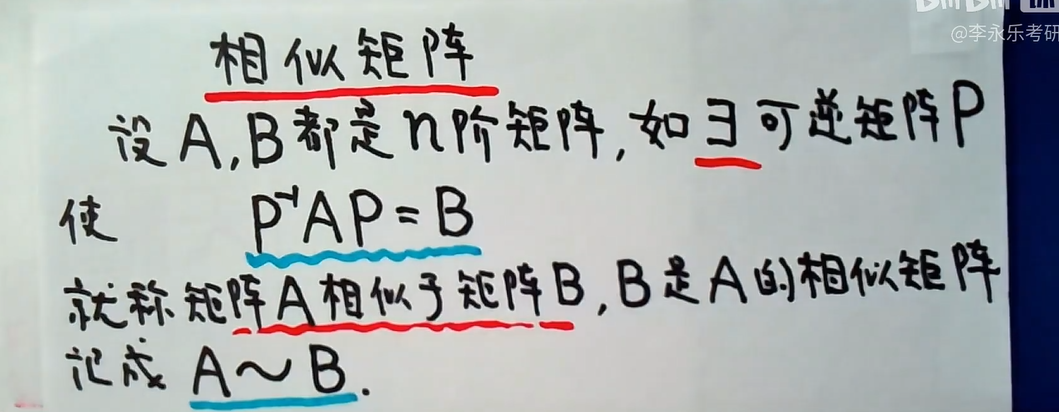 @李永乐考研
相似矩阵
设A,B都是n阶矩阵,如∃可逆矩阵P
使 P⁻¹AP=B
就称矩阵A相似于矩阵B,B是A的相似矩阵
记成 A~B.